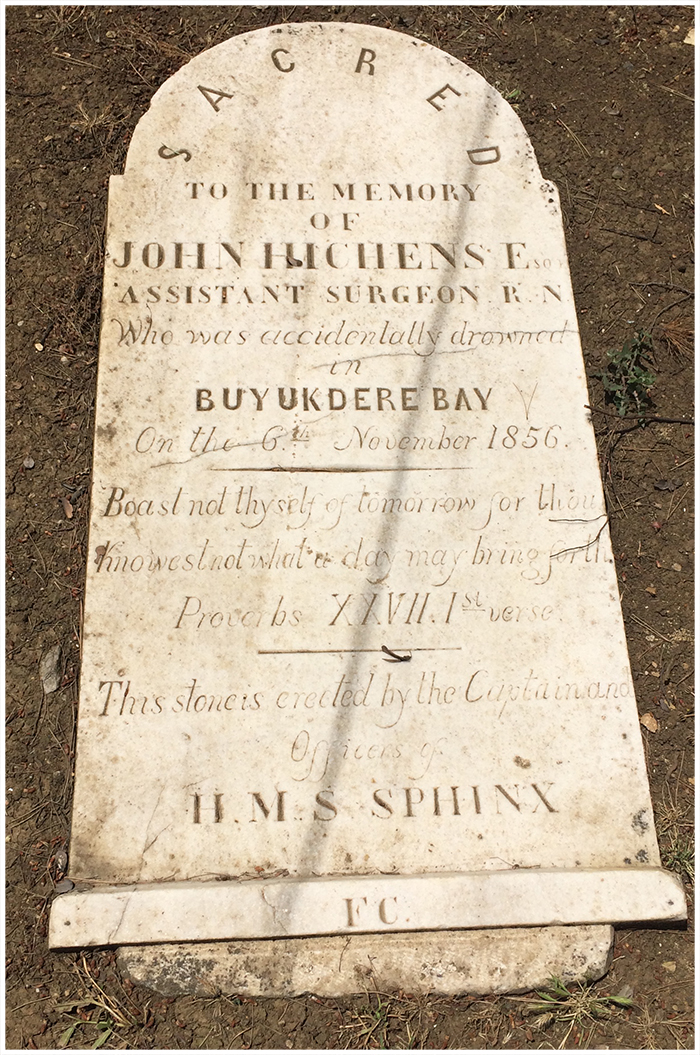 SACRED
TO THE MEMORY
OF
JOHN HICHENS Esqr
ASSISTANT SURGEON R.N
Who was accidentally drowned
in
BUYUKDERE BAY
On the 6.th November 1856.
Boast not thyself of tomorrow for thou
knowest not what a day may bring forth
Proverbs XXVII. 1st verse.
This stone is erected by the Captain and
Officers of
H.M.S SPHINX
F C.